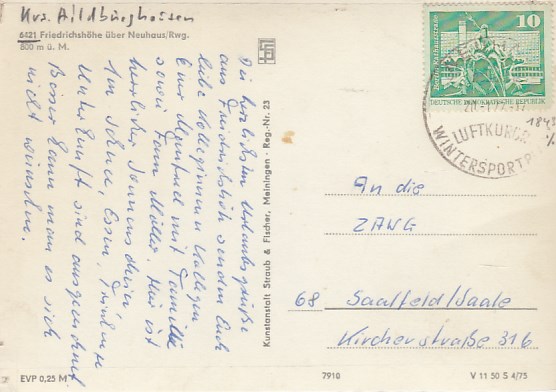 Krs. Hildburghausen
6421 Friedrichshöhe über Neuhaus/Rwg.
800 m ü. M.
Die herzlichsten Urlaubsgrüße
aus Friedrichshöh senden Euch
liebe Kolleginnen Kollegen
Eure mit Familie
sowie Fam. Müller. Hier ist
herrlicher Sonnenschein
Im Schnee, Essen, Trinken
Unterkunft sind ausgezeichnet
Besser kann man es sich
nicht wünschen.
Kunstanstalt Straub & Fischer, Meiningen · Reg.-Nr. 23
10
DEUTSCHE DEMOKRATISCHE REPUBLIK
LUFTKUROR
WINTERSPORTPL
An die
ZANG
68 Saalfeld/Saale
Kirchenstraße 316
EVP 0,25 M
7910
V 11 50 S 4/75